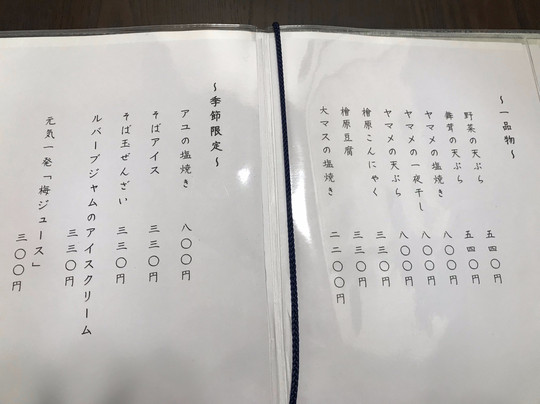 〜一品物〜
野菜の天ぷら 五四〇円
舞茸の天ぷら 五四〇円
ヤマメの塩焼き 八〇〇円
ヤマメの一夜干し 八〇〇円
ヤマメの天ぷら 八〇〇円
檜原こんにゃく 三三〇円
檜原豆腐 三三〇円
大マスの塩焼き 二二〇〇円
〜季節限定〜
アユの塩焼き 八〇〇円
そばアイス 三三〇円
そば玉ぜんざい 三三〇円
ルバーブジャムのアイスクリーム
三三〇円
元気一発「梅ジュース」
三〇〇円